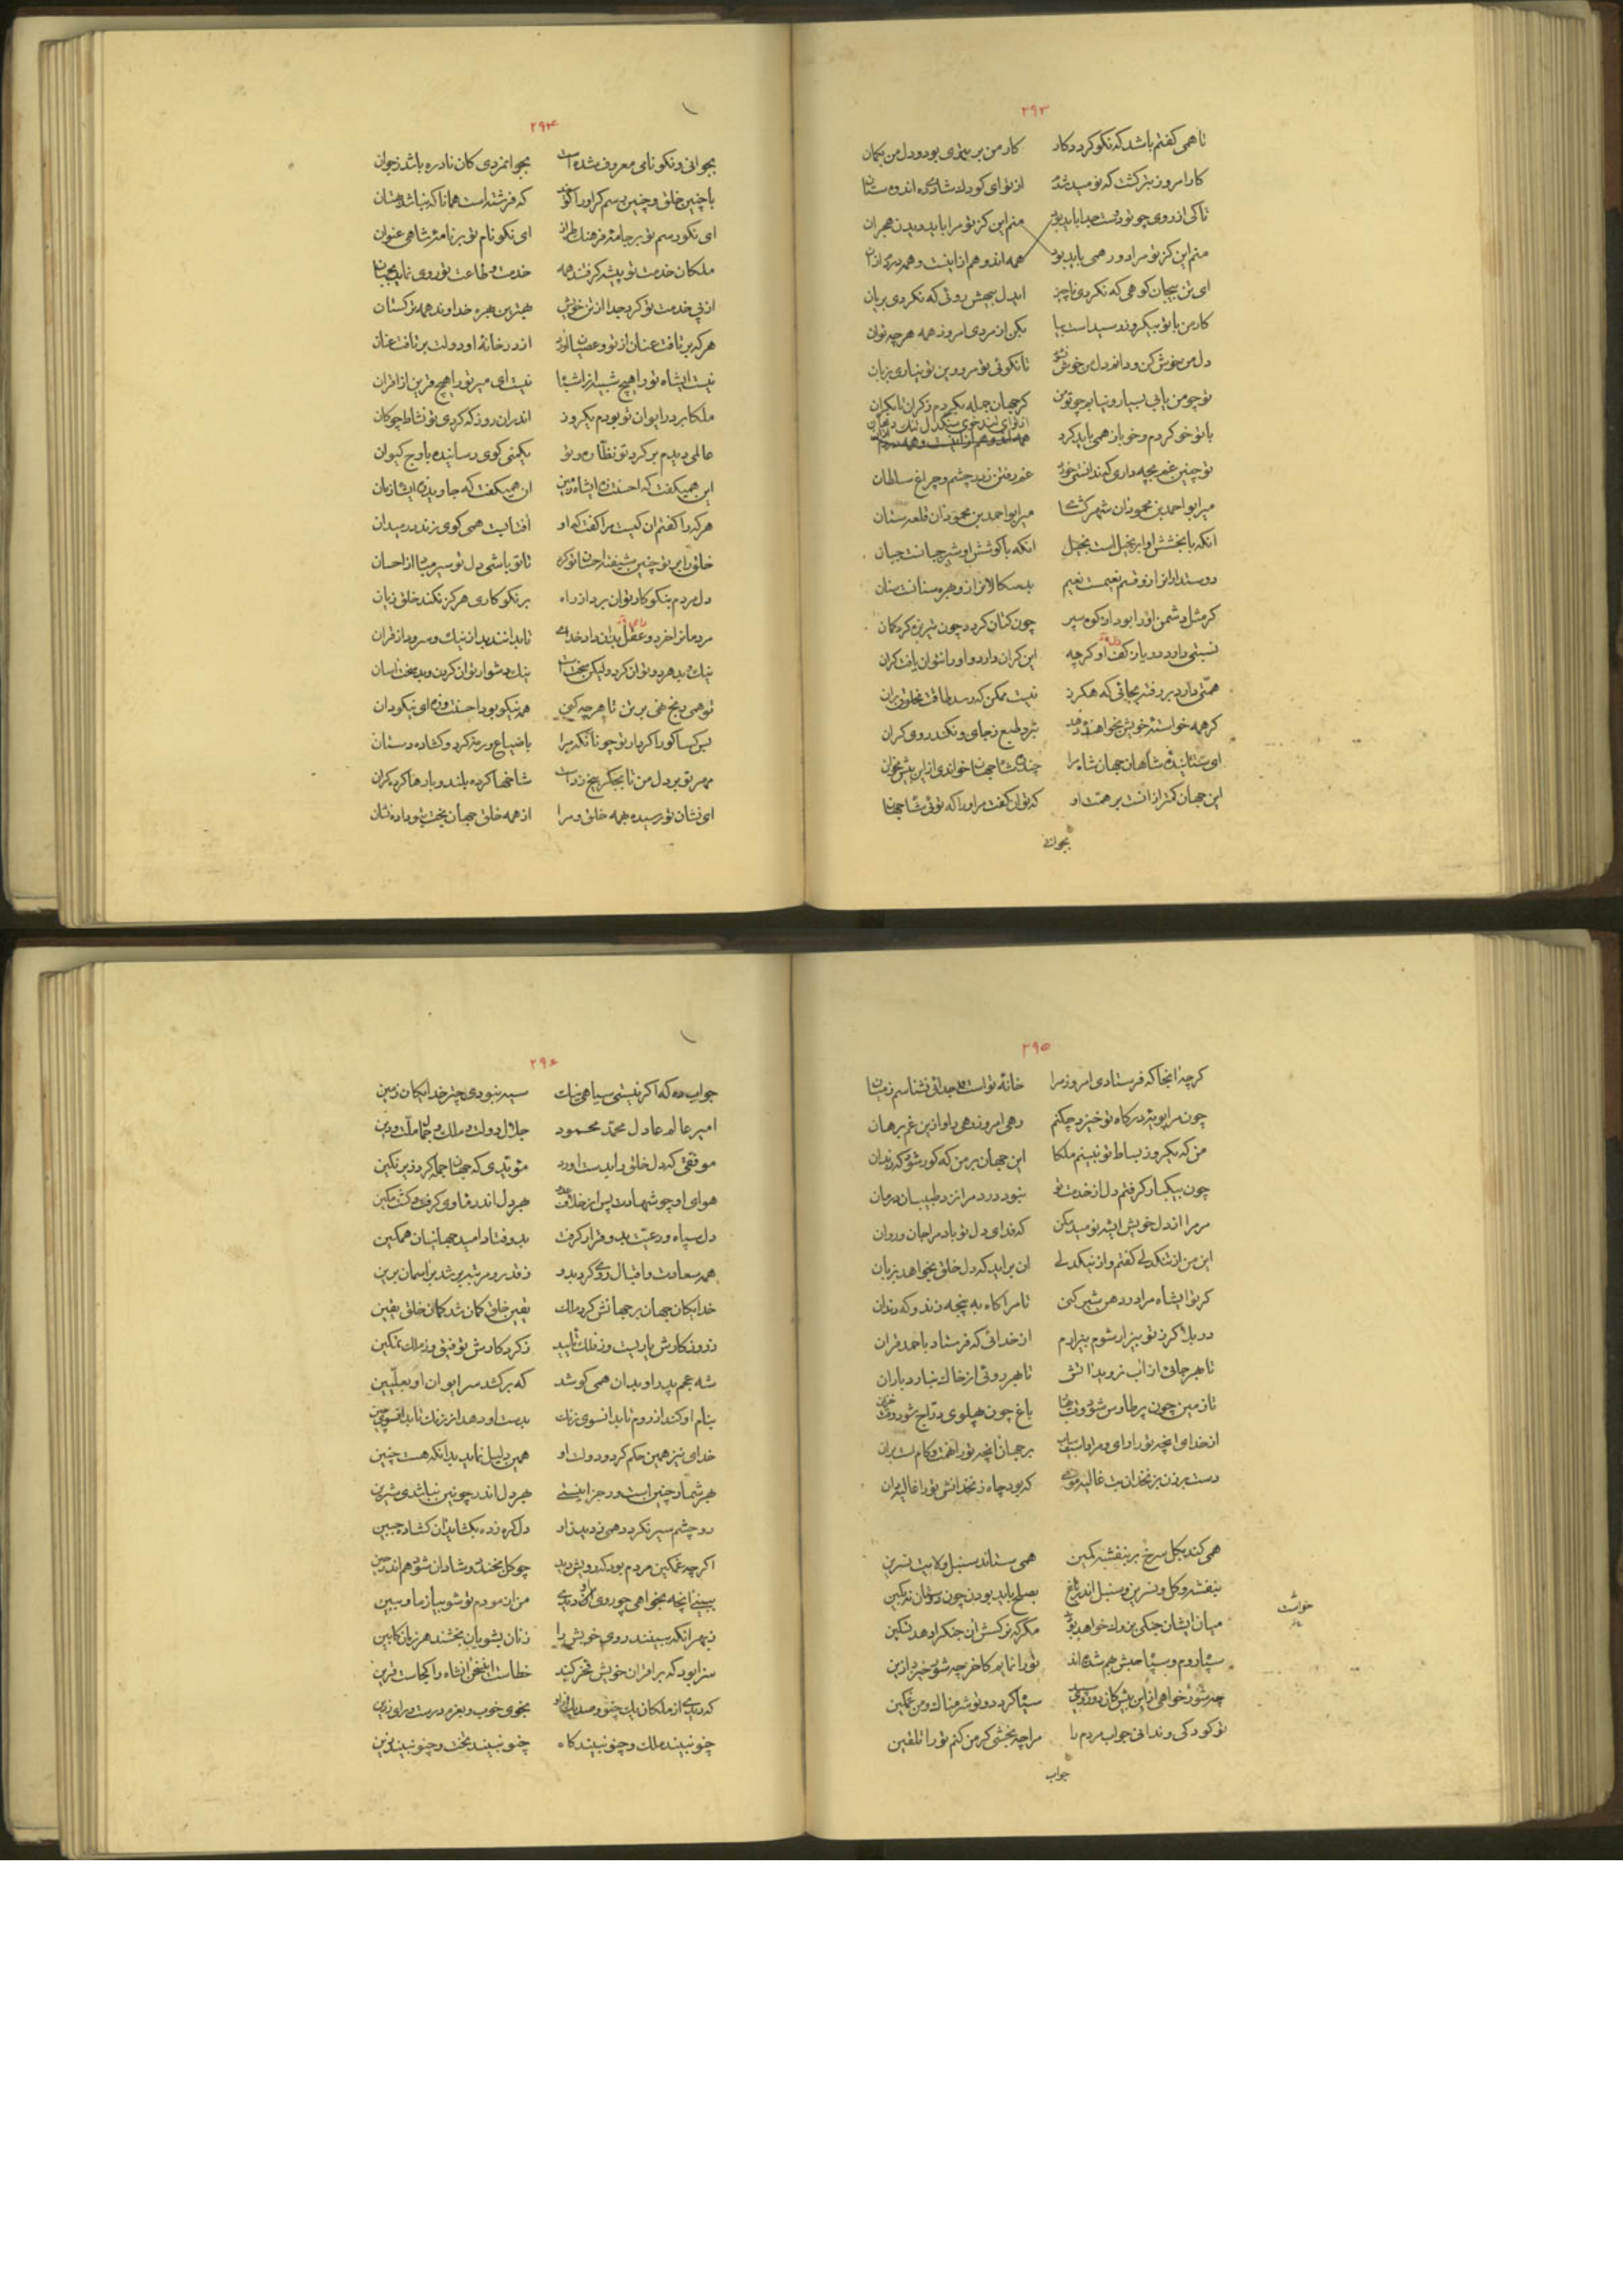 ۲۹۳
تا همی گفتم باشد که نکو گردد کار کار من بر بتری بود و دل من بگمان
کار امروز بتر گشت که نومید شدم از تو ای کودک شادی ده انده ستان
تا کی از روی چو تو دوست جدا باید بود منم این کز تو مرا باید دیدن هجران
منم این کز تو مرا دور همی باید بود همه اندوهم ازینست و همه دردم ازان
ای تن بیجان کوهی که نگردی ناچیز ای دل بیهش روئی که نگردی بریان
کار من با تو بیکروز رسیدست بیا بکن از مردی امروز همه هرچه توان
دل من خوش کن و دانم دل من خوش نشود تا نگوئی تو مر و وین تو نیاری بزبان
تو چو من یابی بسیار و نیابم چو تو من گر جهان جمله بگردم ز کران تا بکران
از تو ای تند خوی سنگدل تنگ دهان
با تو خو کردم و خو باز همی باید کرد
تو چنین غم بچه داری که ندانستی خورد غم رفتن زدر چشم و چراغ سلطان
میر ابو احمد بن محمود آن شهر گشای میر ابو احمد بن محمود آن قلعه ستان
آنکه با بخشش او ابر بخیل است بخیل آنکه با کوشش او شیر جبانست جبان
دوستداران را زو قسم نعیمست نعیم بدسگالان را زو بهره سنانست سنان
گر مثل دشمن او را بود از کوه سپر چون کتان گردد چون تیر نهد در کمان
نسبتی دارد دریا ز کف او گرچه این کران دارد و او را نتوان یافت کران
همتی دارد بر رفته بجائی که هگرز نیست ممکن که رسد طاقت مخلوق بران
گر همه خواسته خویش بخواهنده دهد نبرد طبع ز جای و نکند روی گران
ای ستاینده شاهان جهان شاه مرا چند شاه جهان خوانی ازین پیش مخوان
این جهان کمتر از آنست بر همت او که توان گفت مر او را که توئی شاه جهان
بجوانی
۲۹۴
بجوانی و نکو نامی معروف شده است بجوانمردی کان نادره باشد ز جوان
با چنین خلق و چنین رسم گر او را گویند که فرشته است همانا که نباشد بهتان
ای نکو رسم تو بر جامه فرهنگ طراز ای نکو نام تو بر نامه شاهی عنوان
ملکان خدمت تو پیشه گرفتند همه خدمت و طاعت تو روی نماید بجنان
از پی خدمت تو کرد جدا از تن خویش بهترین بهره خداوند همه ترکستان
هر که برتافت عنان از تو و عصیان آورد از در خانه او دولت بر تافت عنان
نیست ای شاه تو را هیچ شبیه از اشباه نیست ای میر تو را هیچ قرین از اقران
ملکا بر در ایوان تو بودم یکروز اندران روز که کردی تو نشاط چوگان
عالمی دیدم بر گرد تو نظاره و تو بکمی گوی رسانیده باوج کیوان
این همیگفت که احسنت زه ای شاه زمین آن همیگفت که جاوید زی ای شاه زمان
هر که را گفتم آن کیست مرا گفت که او آفتابست همی گوی زند در میدان
خلق را بر تو چنین شیفته احسان تو کرد تا تو باشی دل تو سیر مباد از احسان
دل مردم بنکو کار توان برد از راه بر نکو کاری هرگز نکند خلق زیان
مردمان را خرد و عقل بدان داد خدای تا بدانند بد از نیک و سرود از قرآن
نیک و بد هر دو توان کرد و لیکن بخست است نیک دشوار توان کردن و بد سخت آسان
تو همی رنج نهی بر تن تا هرچه کنی همه نیکو بود احسنت و زه ای نیکو دان
بس کسا کو را کردار تو چونانکه مرا با ضیاع و رمه کرد و گشاده دستان
مهر تو بر دل من تا بجگر بیخ زدست شاخها کرده بلند و بارها کرده گران
ای نشان تو رسیده بهمه خلق و مرا از همه خلق جهان بخت بتو داده نشان
۲۹۵
گرچه آنجا که فرستادی امروز مرا خانه تو است جدائی نشناسم ز میان
چون مرا بویه درگاه تو خیزد چکنم رهی آموز رهی را و ازین غم برهان
من که یکروز بساط تو نبینم ملکا این جهان بر من که گور شود گه زندان
چون بیکبار گرفتم دل از خدمت تو نبود درد مرا نزد طبیبان درمان
مر مرا از دل خویش ای شه نومید مکن که فدای دل تو باد مرا جان و روان
این من از تنگدلی گفتم و از نیکدلی آن بر آید که دل خلق بخواهد بزبان
گر تو ای شاه مرا در دهن شیر کنی تا مرا گاه به پنجه زند و گه دندان
در بلا گر ز تو بیزار شوم بیزارم از خدائی که فرستاد باحمد قران
تا بهر جائی از آب نروید آتش تا بهر روئی از خاک نبارد باران
تا زمین چون پر طاوس شود وقت بهار باغ چون پهلوی دراج شود وقت خزان
از خدای آنچه تو را رای و مراد است بیاب بر جهان آنچه تو را نهمت و کام است بران
دست بر زن بزنخدان بت غالیه موی که بود چاه زنخدانش تو را غالیه دان
همی کند بگل سرخ بر بنفشه کمین همی ستاند سنبل ولایت نسرین
بنفشه و گل و نسرین و سنبل اندر باغ بصلح باید بودن چون دوستان نه بکین
میان ایشان جنگی بزرگ خواهد بود مگر که نرگس آن جنگ را دهد تسکین
سپاه روم و سپاه حبش بهم شده اند تو را نمایم کاخر چه شور خیزد ازین
خواست
چه شور خواهی ازین بیش کان دو زلف سیاه سپاه گردد و تو شرمناک و من غمگین
تو کودکی و ندانی جواب مردم را مرا چه بخشی گر من کنم تو را تلقین
جواب
۲۹۶
جواب ده که اگر نیستی سیاهی نیک سیه نبودی چتر خدایگان زمین
امیر عالم عادل محمد محمود جلال دولت و ملک و جمال ملت و دین
موفقی که دل خلق را بدست آورد مؤیدی که جهان جمله کرد زیر نگین
هوای او چو شهادت و پس از خلاف عدو بهر دل اندر ماوی گرفت و گشت مکین
دل سپاه و رعیت بدو قرار گرفت بدو فتاد امید جهانیان همگین
همه سعادت و اقبال روی کرد بدو ز قدر و مرتبه بر شد بر آسمان برین
خدایگان جهان بر جهانش کرد ملک یقین خلق گمان شد گمان خلق یقین
ز روزگارش یاریست وز فلک تأیید ز کردگارش توفیق وز ملک تمکین
شه عجم پدر او بدان همی کوشد که برکشد سر ایوان او بعلیین
بنام او کند از روم تا بدانسوی زنگ بدست او دهد از زنگ تا بدانسوی چین
خدای نیز همین حکم کرد و دولت او همین دلیل نماید بدانکه هست چنین
بهر شمار چنین است و در جز اینستی بهر دل اندر چونین نباشدی شیرین
دو چشم سیر نگردد همی ز دیدن او دل گره زده بگشاید آن گشاده جبین
اگرچه غمگین مردم بود که رویش دید چو گل بخندد و شادان شود هم اندر حین
ببینی آنچه بخواهی چو روی او دیدی من آن مودم تو شو بیازما و ببین
ز بهر آنکه ببینند روی خویش را زنان بشویان بخشند هر زمان کابین
سزا بود که بر اقران خویش فخر کند خطاست این سخن آن شاه را کجاست قرین
که دیدی از ملکان یک چنو و صد یک او بخوی خوب و بعزم درست و رای رزین
چنو نبیند ملک و چنو نبیند گاه چنو نبیند تخت و چنو نبیند زین